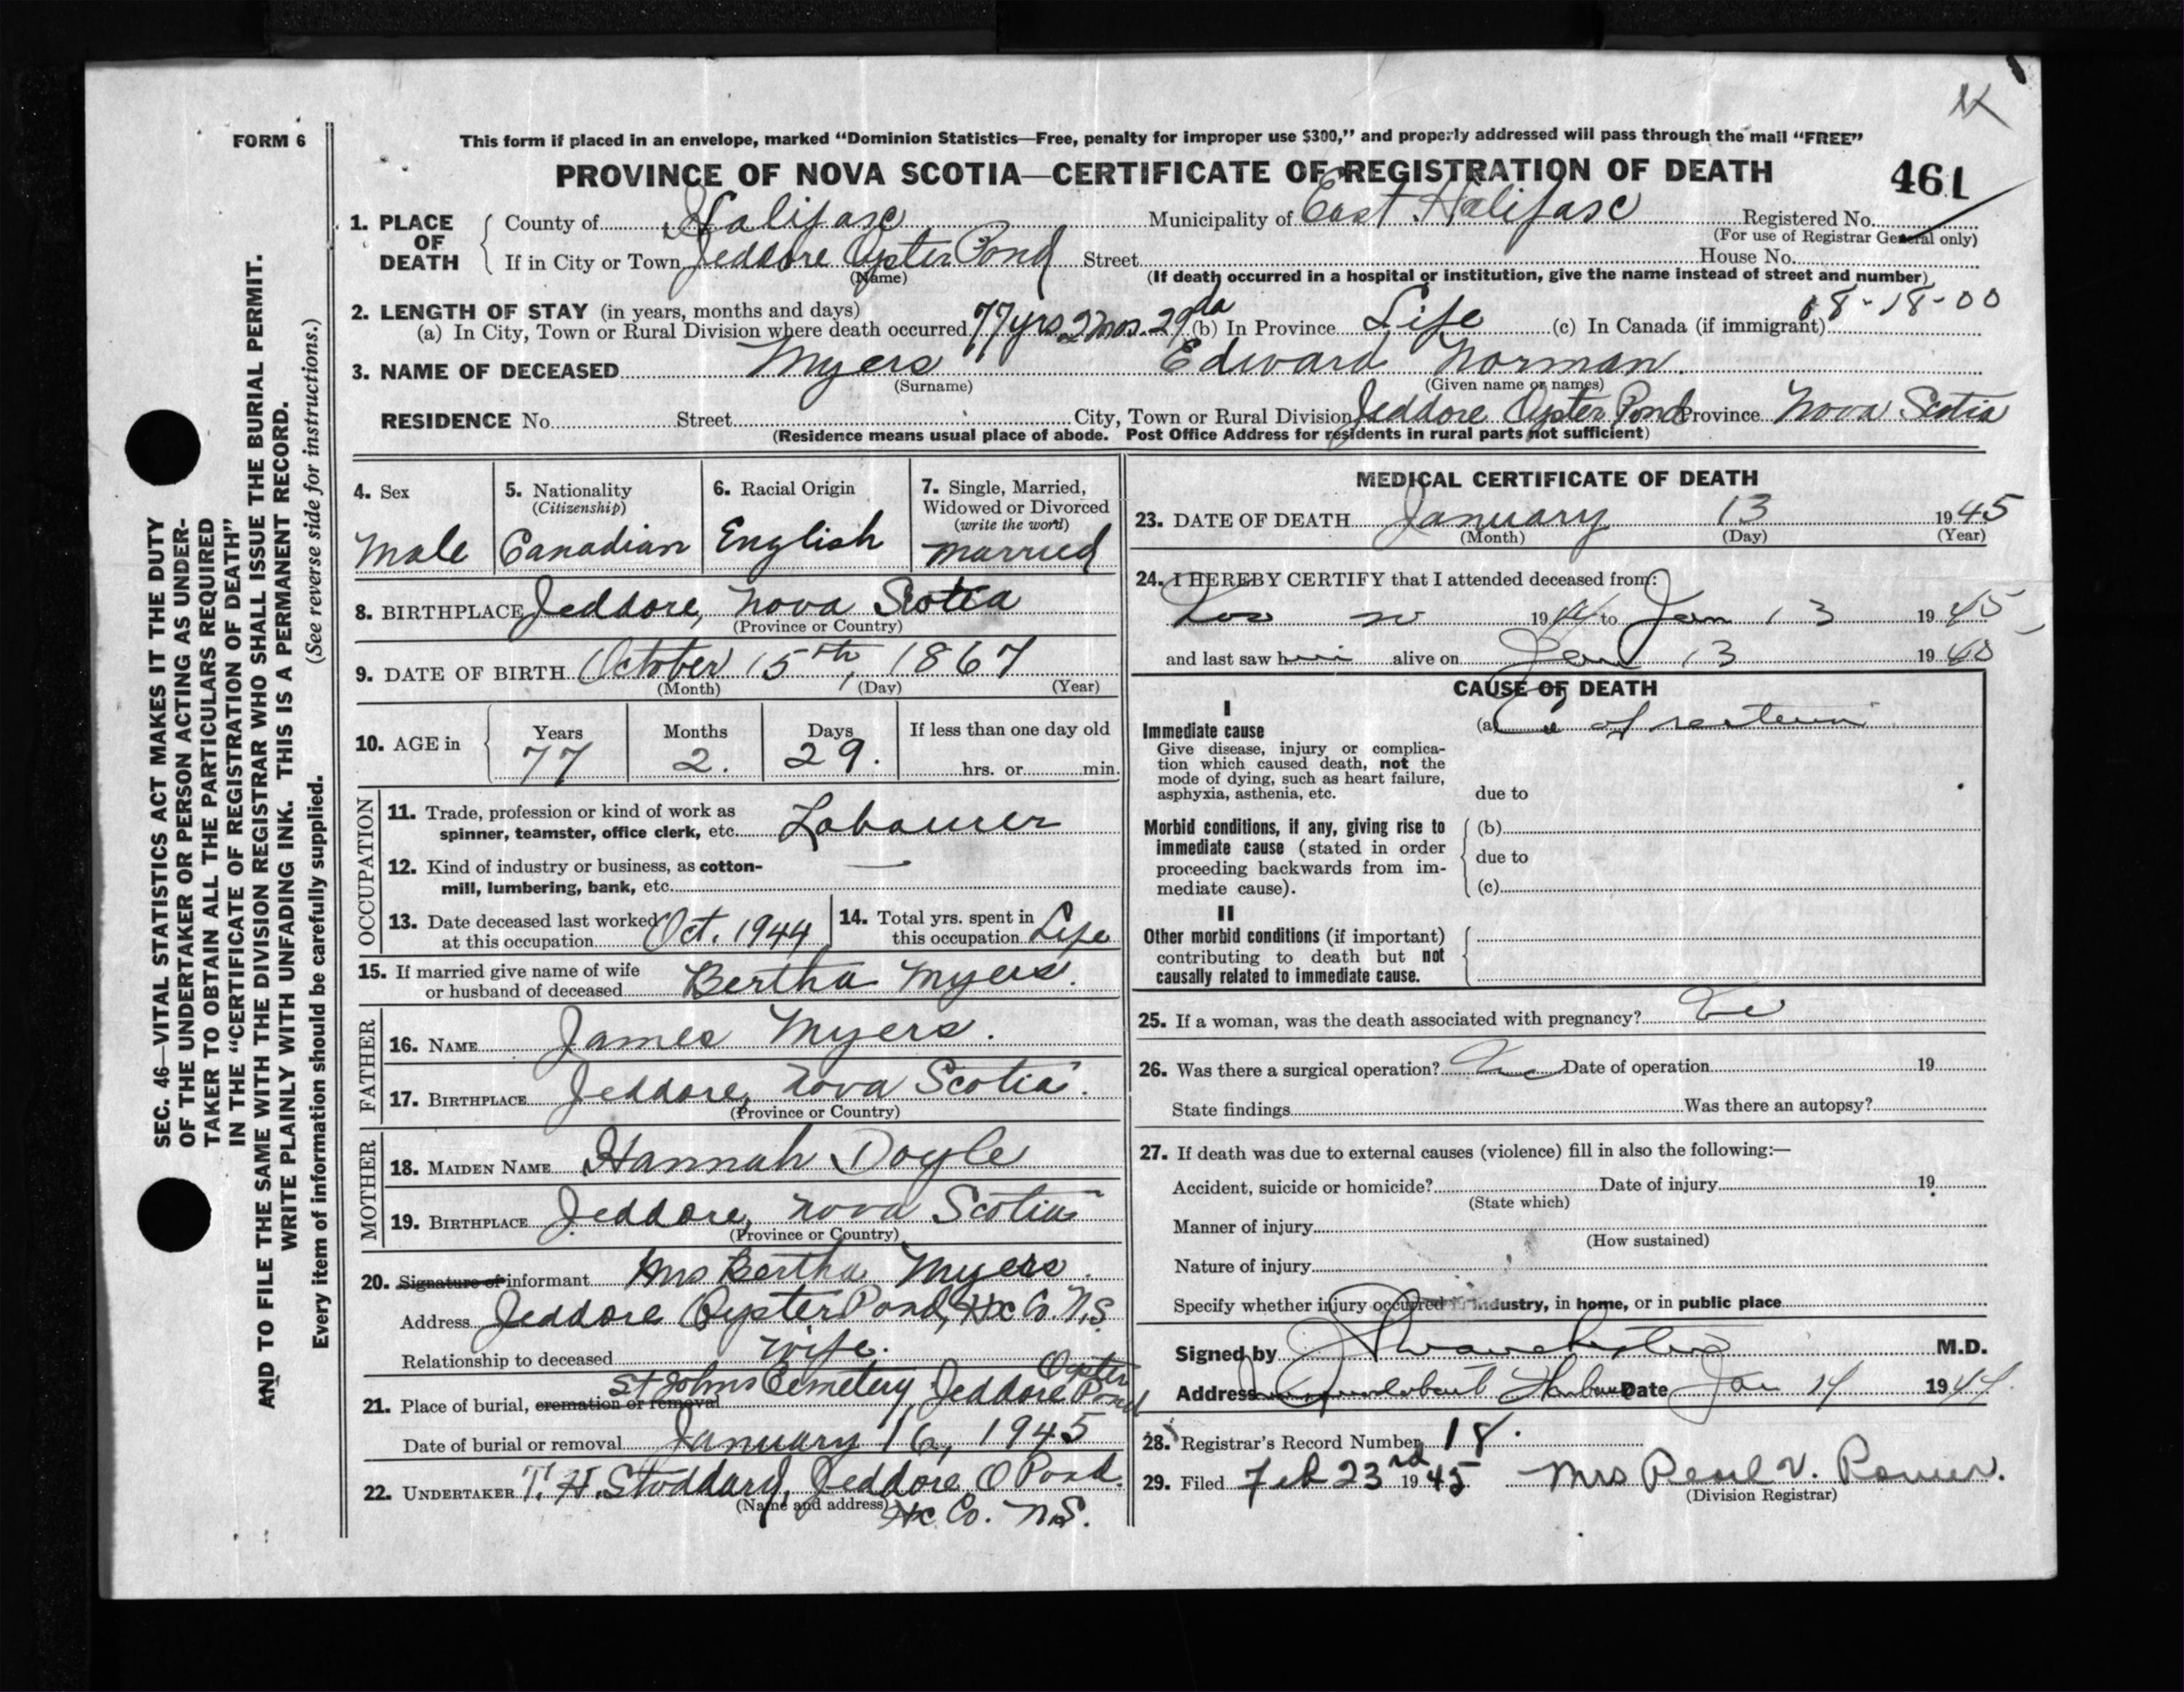 FORM 6
This form if placed in an envelope, marked "Dominion Statistics—Free, penalty for improper use $300," and properly addressed will pass through the mail "FREE"
PROVINCE OF NOVA SCOTIA—CERTIFICATE OF REGISTRATION OF DEATH
461
1. PLACE OF DEATH
County of Halifax Municipality of East Halifax Registered No.
(For use of Registrar General only)
If in City or Town Jeddore Oyster Pond Street House No.
(Name) (If death occurred in a hospital or institution, give the name instead of street and number)
2. LENGTH OF STAY (in years, months and days) 8-18-00
(a) In City, Town or Rural Division where death occurred 77 yrs 2 mos. 29 da (b) In Province Life (c) In Canada (if immigrant)
3. NAME OF DECEASED Myers Edward Norman.
(Surname) (Given name or names)
RESIDENCE No. Street City, Town or Rural Division Jeddore Oyster Pond Province Nova Scotia
(Residence means usual place of abode. Post Office Address for residents in rural parts not sufficient)
SEC. 46—VITAL STATISTICS ACT MAKES IT THE DUTY
OF THE UNDERTAKER OR PERSON ACTING AS UNDER-
TAKER TO OBTAIN ALL THE PARTICULARS REQUIRED
IN THE "CERTIFICATE OF REGISTRATION OF DEATH"
AND TO FILE THE SAME WITH THE DIVISION REGISTRAR WHO SHALL ISSUE THE BURIAL PERMIT.
WRITE PLAINLY WITH UNFADING INK. THIS IS A PERMANENT RECORD.
Every item of information should be carefully supplied. (See reverse side for instructions.)
4. Sex
Male
5. Nationality
(Citizenship)
Canadian
6. Racial Origin
English
7. Single, Married,
Widowed or Divorced
(write the word)
married
8. BIRTHPLACE Jeddore, Nova Scotia
(Province or Country)
9. DATE OF BIRTH October 15th, 1867
(Month) (Day) (Year)
10. AGE in
Years Months Days If less than one day old
77 2. 29. hrs. or min.
OCCUPATION
11. Trade, profession or kind of work as
spinner, teamster, office clerk, etc. Labourer
12. Kind of industry or business, as cotton- —
mill, lumbering, bank, etc.
13. Date deceased last worked
at this occupation Oct. 1944
14. Total yrs. spent in
this occupation Life
15. If married give name of wife
or husband of deceased Bertha Myers.
FATHER
16. NAME James Myers.
17. BIRTHPLACE Jeddore, Nova Scotia.
(Province or Country)
MOTHER
18. MAIDEN NAME Hannah Doyle
19. BIRTHPLACE Jeddore, Nova Scotia
(Province or Country)
20. Signature of informant Mrs Bertha Myers.
Address Jeddore Oyster Pond, Hx Co. N.S.
Relationship to deceased wife.
21. Place of burial, cremation or removal St Johns Cemetery, Jeddore Oyster Pond
Date of burial or removal January 16, 1945
22. UNDERTAKER T. H. Stoddard, Jeddore O Pond.
(Name and address) Hx Co. N.S.
MEDICAL CERTIFICATE OF DEATH
23. DATE OF DEATH January 13 1945
(Month) (Day) (Year)
24. I HEREBY CERTIFY that I attended deceased from:
19 to Jan 13 1945
and last saw him alive on Jan 13 19
CAUSE OF DEATH
I
Immediate cause (a)
Give disease, injury or complica-
tion which caused death, not the
mode of dying, such as heart failure,
asphyxia, asthenia, etc.
due to
Morbid conditions, if any, giving rise to (b)
immediate cause (stated in order
proceeding backwards from im-
mediate cause).
due to
(c)
II
Other morbid conditions (if important)
contributing to death but not
causally related to immediate cause.
25. If a woman, was the death associated with pregnancy?
26. Was there a surgical operation? Date of operation 19
State findings Was there an autopsy?
27. If death was due to external causes (violence) fill in also the following:—
Accident, suicide or homicide? Date of injury 19
(State which)
Manner of injury
(How sustained)
Nature of injury
Specify whether injury occurred in industry, in home, or in public place
Signed by M.D.
Address Harbour Date Jan 14 1944
28. Registrar's Record Number 18.
29. Filed Feb 23rd 1945 Mrs Pearl V.
(Division Registrar)